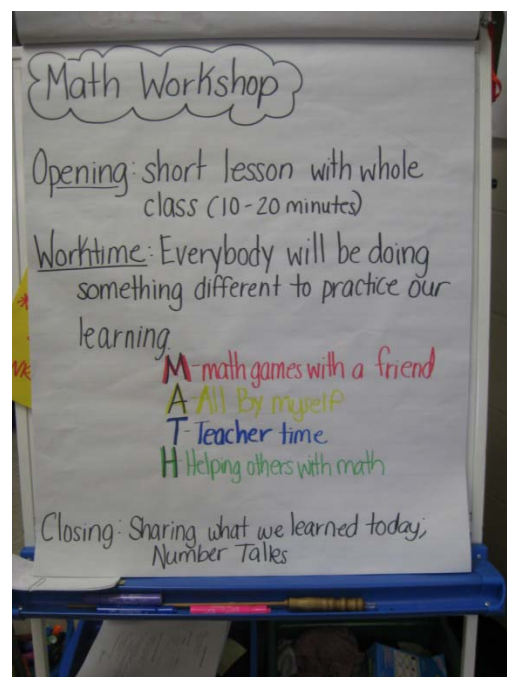 Math Workshop
Opening: short lesson with whole
class (10-20 minutes)
Worktime: Everybody will be doing
something different to practice our
learning.
M-math games with a friend
A-All By myself
T-Teacher time
H Helping others with math
Closing: Sharing what we learned today;
Number Talks